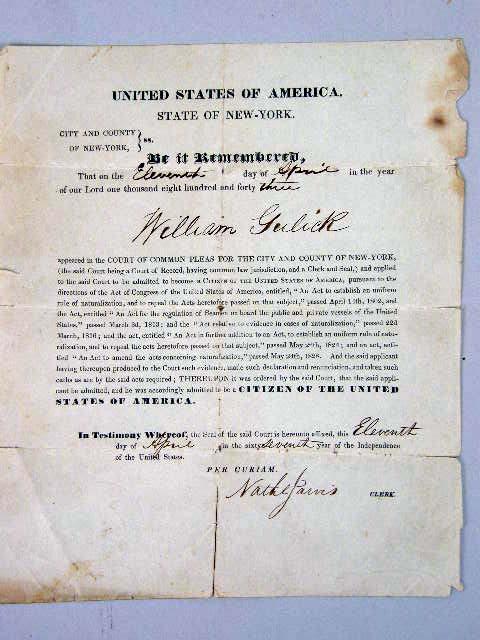 UNITED STATES OF AMERICA.
STATE OF NEW-YORK.
CITY AND COUNTY
OF NEW-YORK, } ss.
Be it Remembered,
That on the Eleventh day of April in the year
of our Lord one thousand eight hundred and forty three
William Gulick
appeared in the COURT OF COMMON PLEAS FOR THE CITY AND COUNTY OF NEW-YORK,
(the said Court being a Court of Record, having common law jurisdiction, and a Clerk and Seal,) and applied
to the said Court to be admitted to become a CITIZEN OF THE UNITED STATES OF AMERICA, pursuant to the
directions of the Act of Congress of the United States of America, entitled, "An Act to establish an uniform
rule of naturalization, and to repeal the Acts heretofore passed on that subject," passed April 14th, 1802; and
the Act, entitled "An Act for the regulation of Seamen on board the public and private vessels of the United
States," passed March 3d, 1813; and the "Act relative to evidence in cases of naturalization," passed 22d
March, 1816; and the act, entitled "An Act in further addition to an Act, to establish an uniform rule of natu-
ralization, and to repeal the acts heretofore passed on that subject," passed May 26th, 1824; and an act, entit-
led "An Act to amend the acts concerning naturalization," passed May 24th, 1828. And the said applicant
having thereupon produced to the Court such evidence, made such declaration and renunciation, and taken such
oaths as are by the said acts required; THEREUPON it was ordered by the said Court, that the said appli-
cant be admitted, and he was accordingly admitted to be a CITIZEN OF THE UNITED
STATES OF AMERICA.
In Testimony Whereof, the Seal of the said Court is hereunto affixed, this Eleventh
day of April in the sixty seventh year of the Independence
of the United States.
PER CURIAM.
Nathl Jarvis CLERK.